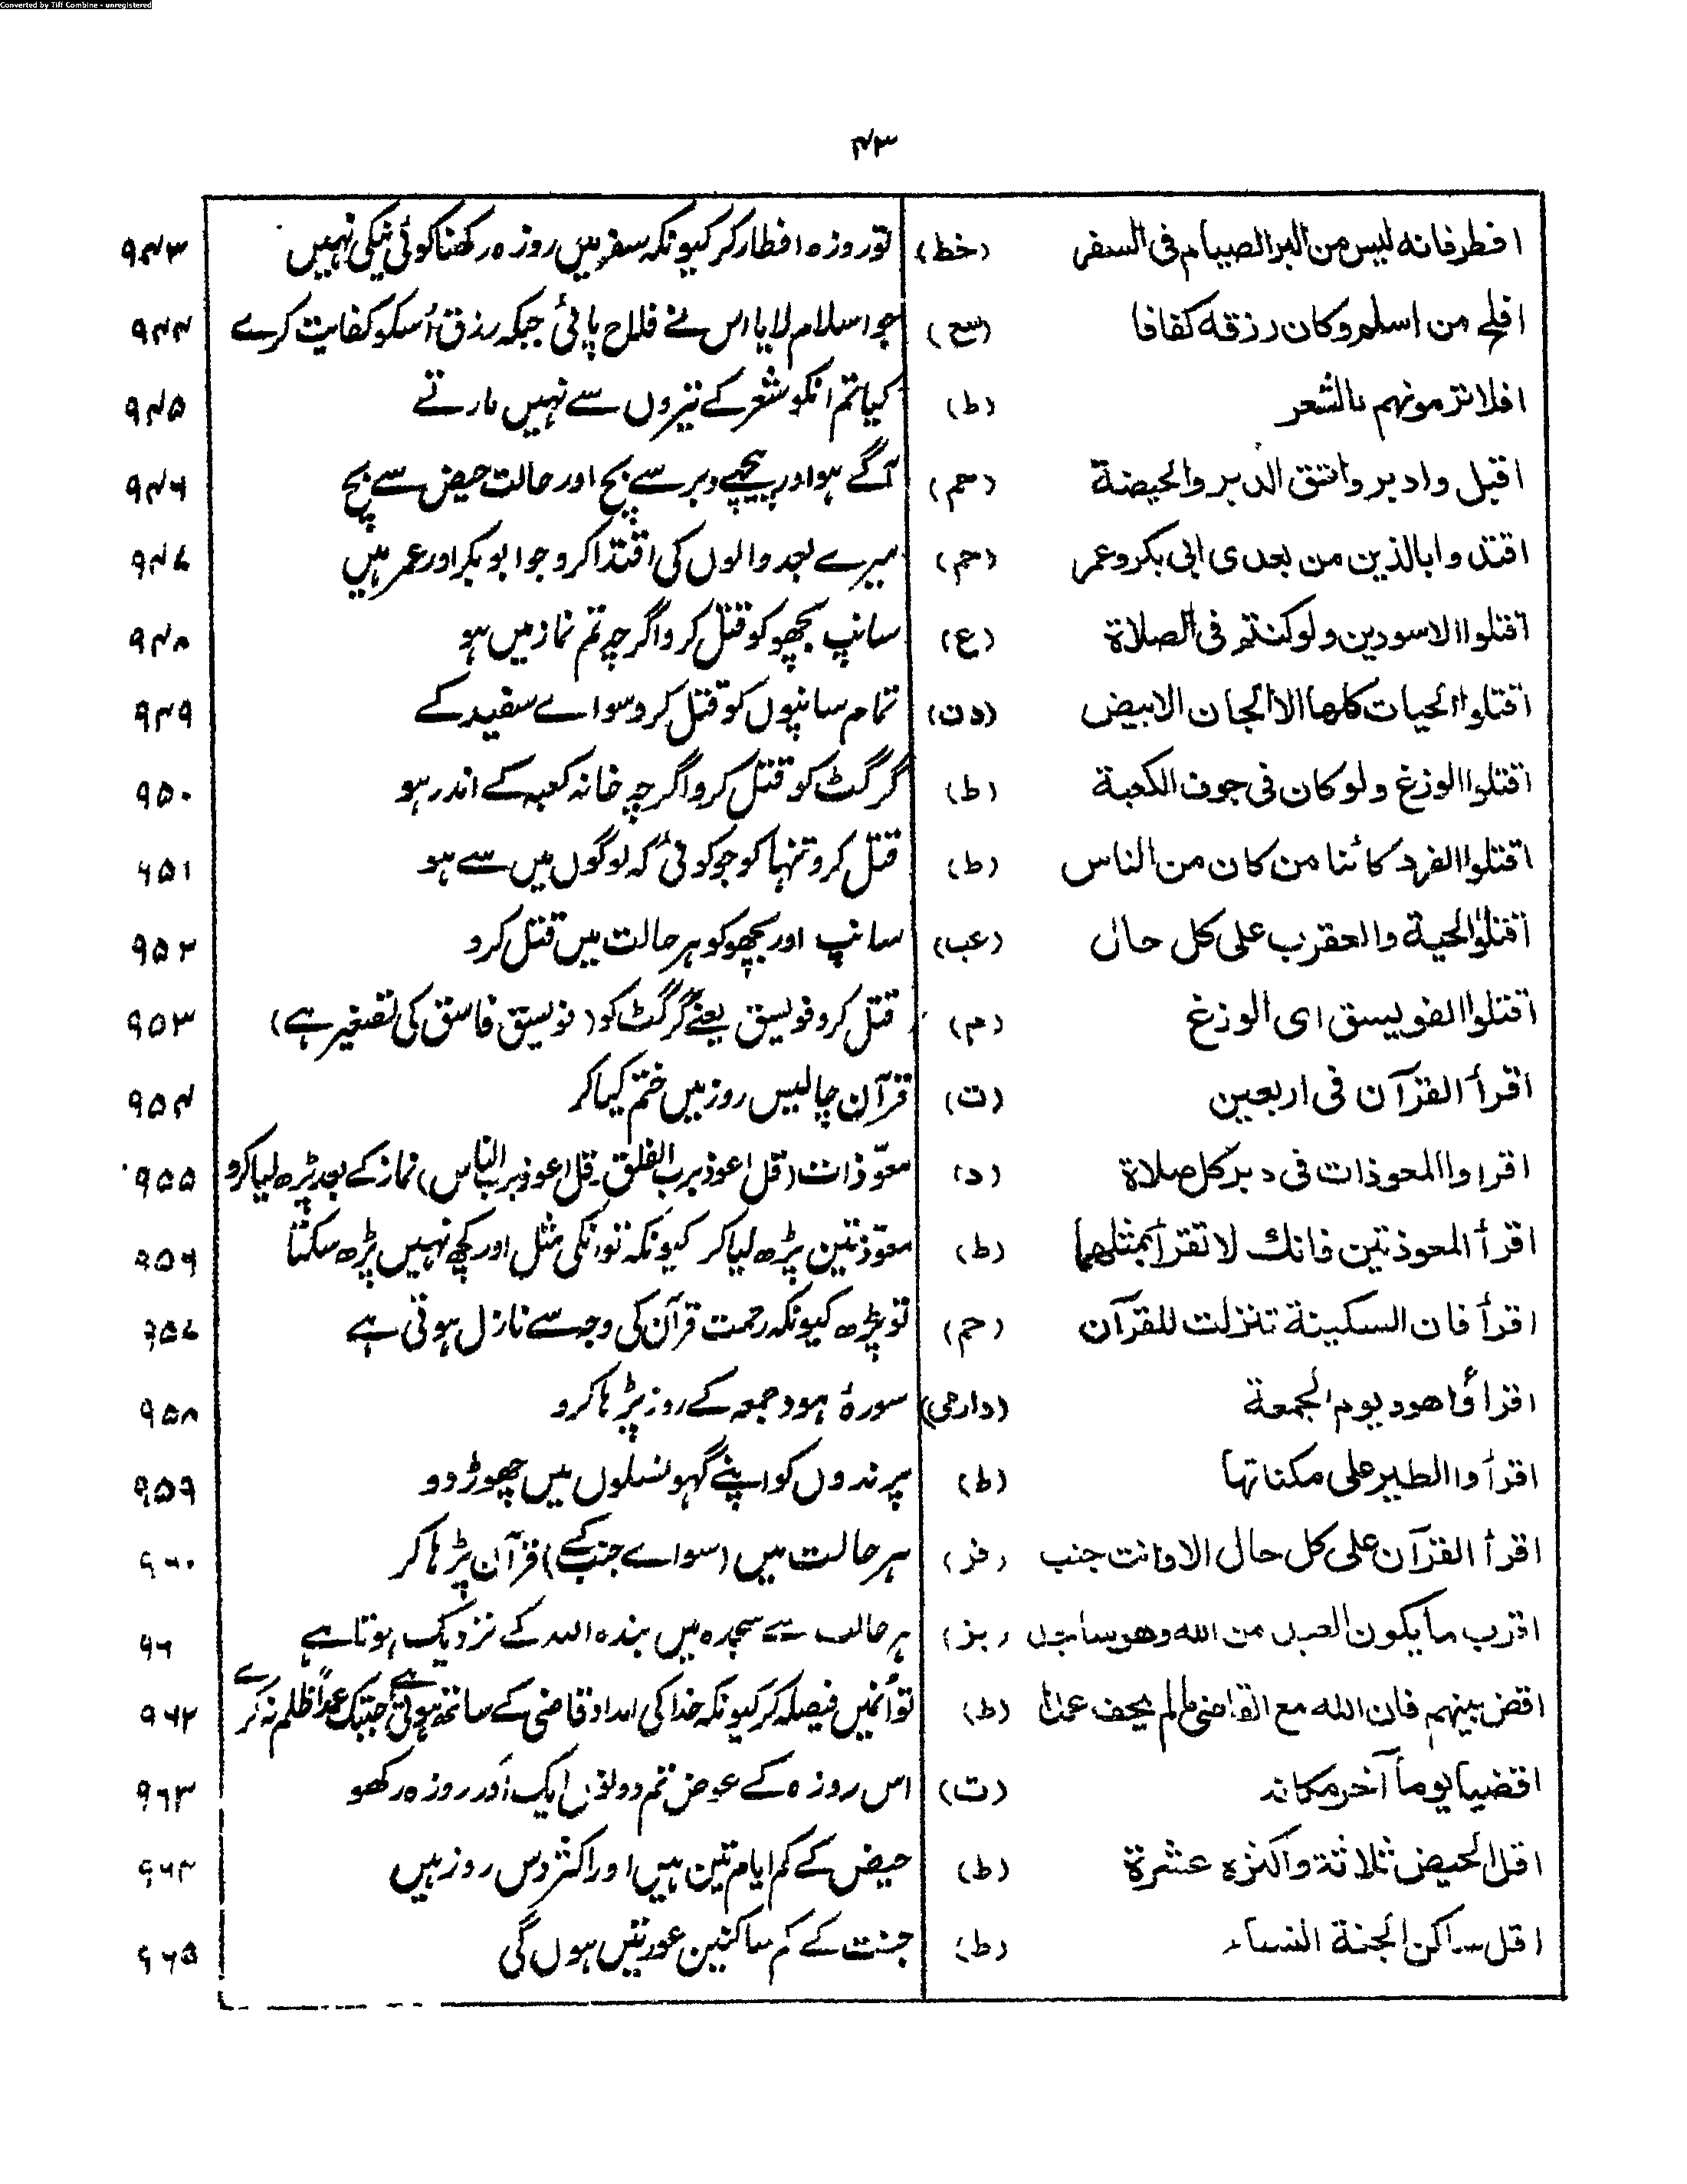 Converted by Tiff Combine - unregistered
۴۳
افطر فانه ليس من البر الصيام فى السفر (خط) تو روزہ افطار کر کیونکہ سفر میں روزہ رکھنا کوئی نیکی نہیں ۹۴۳
افلح من اسلم وكان رزقه كفافا (سع) جو اسلام لایا اس نے فلاح پائی جبکہ رزق اُسکو کفایت کرے ۹۴۴
افلا ترمونهم بالشعر (ط) کیا تم انکو شعر کے تیروں سے نہیں مارتے ۹۴۵
اقبل وادبر واتق الدبر والحيضة (حم) آگے ہو اور پیچھے دبر سے بچ اور حالت حیض سے بچ ۹۴۶
اقتدوا بالذين من بعدى ابى بكر وعمر (حم) میرے بعد والوں کی اقتدا کرو جو ابو بکر اور عمر ہیں ۹۴۷
اقتلوا الاسودين ولو كنتم فى الصلاة (ع) سانپ بچھو کو قتل کرو اگرچہ تم نماز میں ہو ۹۴۸
اقتلوا الحيات كلها الا الجان الابيض (دن) تمام سانپوں کو قتل کرو سواے سفید کے ۹۴۹
اقتلوا الوزغ ولو كان فى جوف الكعبة (ط) گرگٹ کو قتل کرو اگرچہ خانہ کعبہ کے اندر ہو ۹۵۰
اقتلوا الفرد كائنا من كان من الناس (ط) قتل کرو تنہا کو جو کوئی کہ لوگوں میں سے ہو ۹۵۱
اقتلوا الحية والعقرب على كل حال (عب) سانپ اور بچھو کو ہر حالت میں قتل کرو ۹۵۲
اقتلوا الفويسق اى الوزغ (م) قتل کرو فویسق یعنے گرگٹ کو (فویسق فاسق کی تصغیر ہے) ۹۵۳
اقرأ القرآن فى اربعين (ت) قرآن چالیس روز میں ختم کیا کر ۹۵۴
اقراوا المعوذات فى دبر كل صلاة (د) معوّذات (قل اعوذ برب الفلق۔ قل اعوذ برب الناس) نماز کے بعد پڑھ لیا کرو ۹۵۵
اقرأ المعوذتين فانك لا تقرأ بمثلهما (ط) معوّذتین پڑھ لیا کر کیونکہ تو انکی مثل اور کچھ نہیں پڑھ سکتا ۹۵۶
اقرأ فان السكينة تنزلت للقرآن (حم) تو پڑھ کیونکہ رحمت قرآن کی وجہ سے نازل ہوتی ہے ۹۵۷
اقرأوا هود يوم الجمعة (دارمى) سورۂ ہود جمعہ کے روز پڑہا کرو ۹۵۸
اقرأوا الطير على مكناتها (ط) پرندوں کو اپنے گھونسلوں میں چھوڑ دو ۹۵۹
اقرأ القرآن على كل حال الا وانت جنب (فر) ہر حالت میں (سواے جنب کے) قرآن پڑہا کر ۹۶۰
اقرب ما يكون العبد من الله وهو ساجد (بز) ہر حالت سے سجدہ میں بندہ اللہ کے نزدیک ہوتا ہے ۹۶
اقض بينهم فان الله مع القاضى ما لم يحف عمدا (ط) تو اُنمیں فیصلہ کر کیونکہ خدا کی امداد قاضی کے ساتھ ہوتی ہے جبتک عمداً ظلم نہ کرے ۹۶۲
اقضيا يوما آخر مكانه (ت) اس روزہ کے عوض تم دونوں ایک اَور روزہ رکھو ۹۶۳
اقل الحيض ثلاثة واكثره عشرة (ط) حیض کے کم ایام تین ہیں اور اکثر دس روز ہیں ۹۶۴
اقل ساكن الجنة النساء (ط) جنت کے کم ساکنین عورتیں ہوں گی ۹۶۵